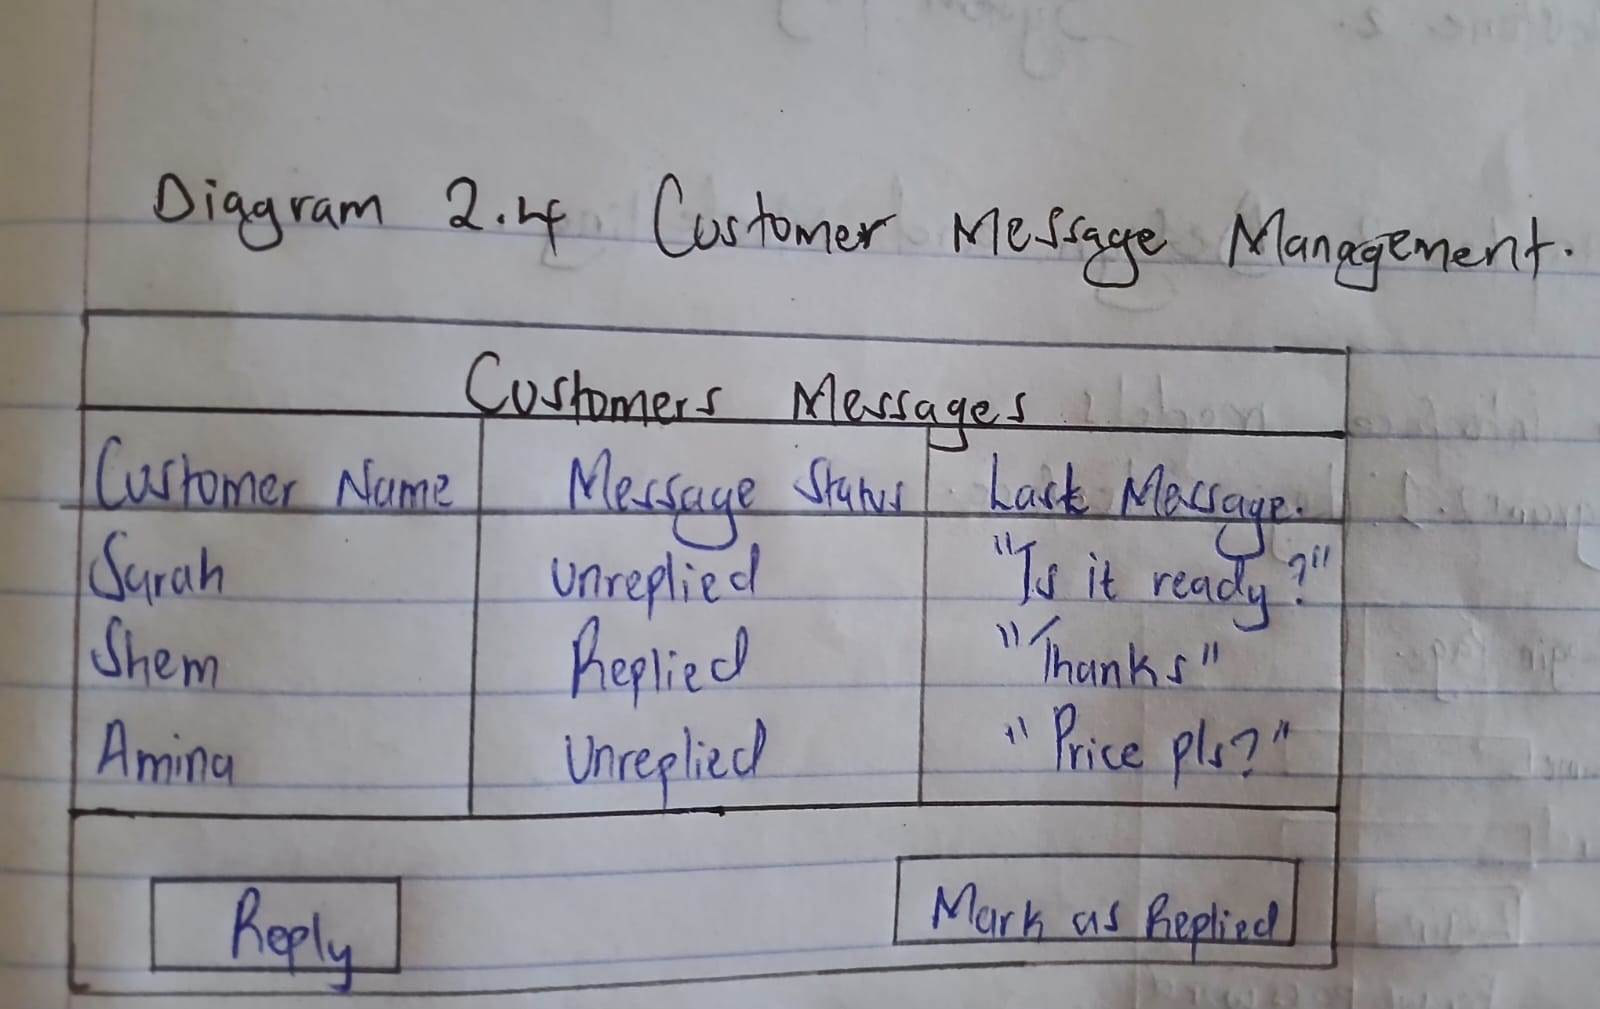 Diagram 2.4 Customer Message Management.
Customers Messages
Customer Name Message Status Last Message.
Sarah Unreplied "Is it ready?"
Shem Replied "Thanks"
Amina Unreplied "Price pls?"
Reply Mark as Replied